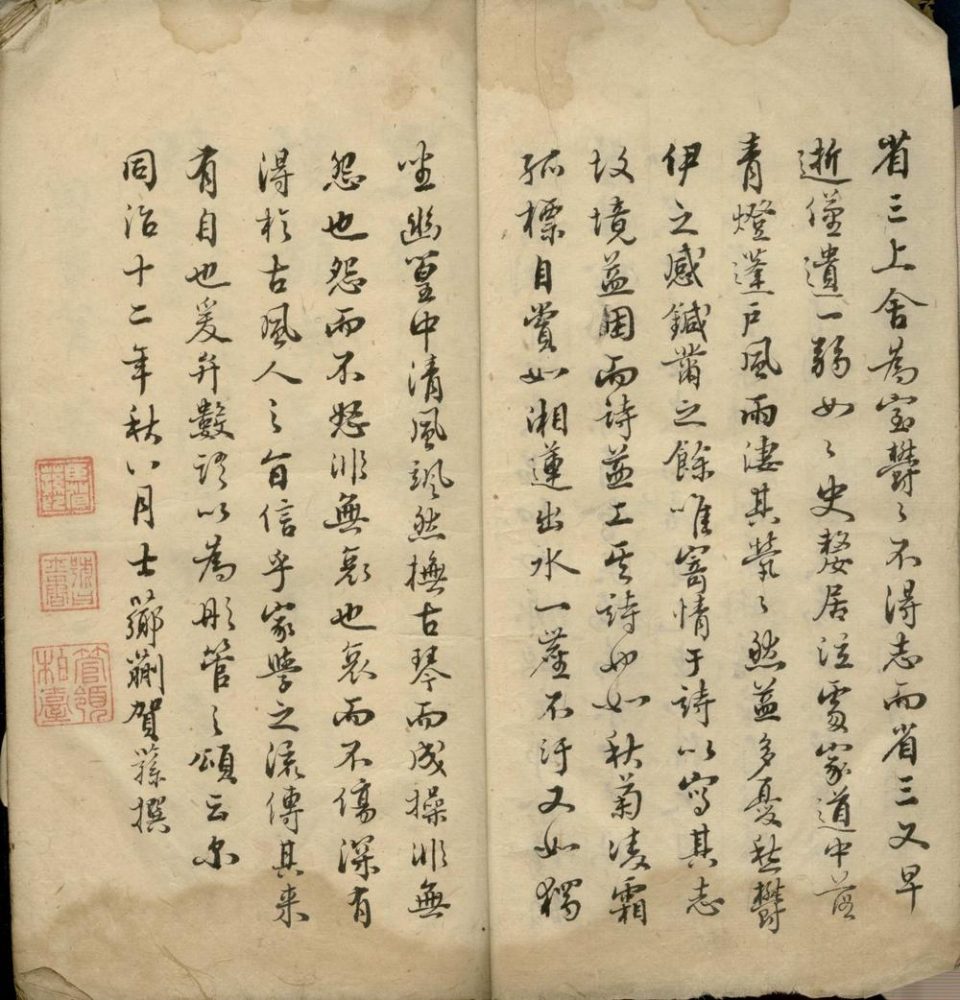 省三上舍為室鬱〻不得志而省三又早
逝僅遺一弱女〻史嫠居泣雪家道中落
青燈蓬戶風雨淒其煢〻然益多憂愁鬱
伊之感鍼黹之餘唯寄情于詩以寫其志
故境益困而詩益工其詩如秋菊凌霜
孤標自賞如湘蓮出水一塵不汙又如獨
坐幽篁中清風颯然撫古琴而成操非無
怨也怨而不怒非無哀也哀而不傷深有
得於古風人之旨信乎家學之流傳其來
有自也爰弁數語以為彤管之頌云尔
同治十二年秋八月士薌賀蓀撰
管領
柏臺